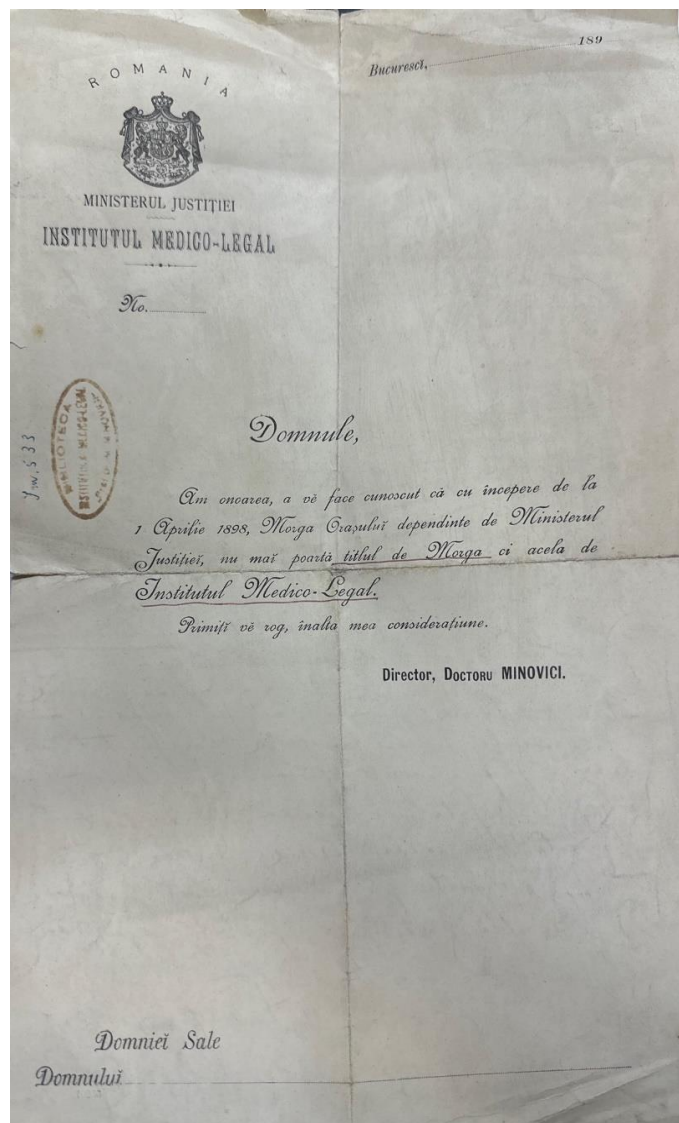 ROMANIA
Bucurescĭ, 189
MINISTERUL JUSTIȚIEI
INSTITUTUL MEDICO-LEGAL
No.
BIBLIOTECA
MEDICO-LEGAL
Domnule,
Am onoarea, a vĕ face cunoscut că cu începere de la
1 Aprilie 1898, Morga Orașuluĭ dependinte de Ministerul
Justițieĭ, nu maĭ poartă titlul de Morga ci acela de
Institutul Medico-Legal.
Primițĭ vĕ rog, înalta mea considerațiune.
Director, DOCTORU MINOVICI.
Domnieĭ Sale
Domnuluĭ